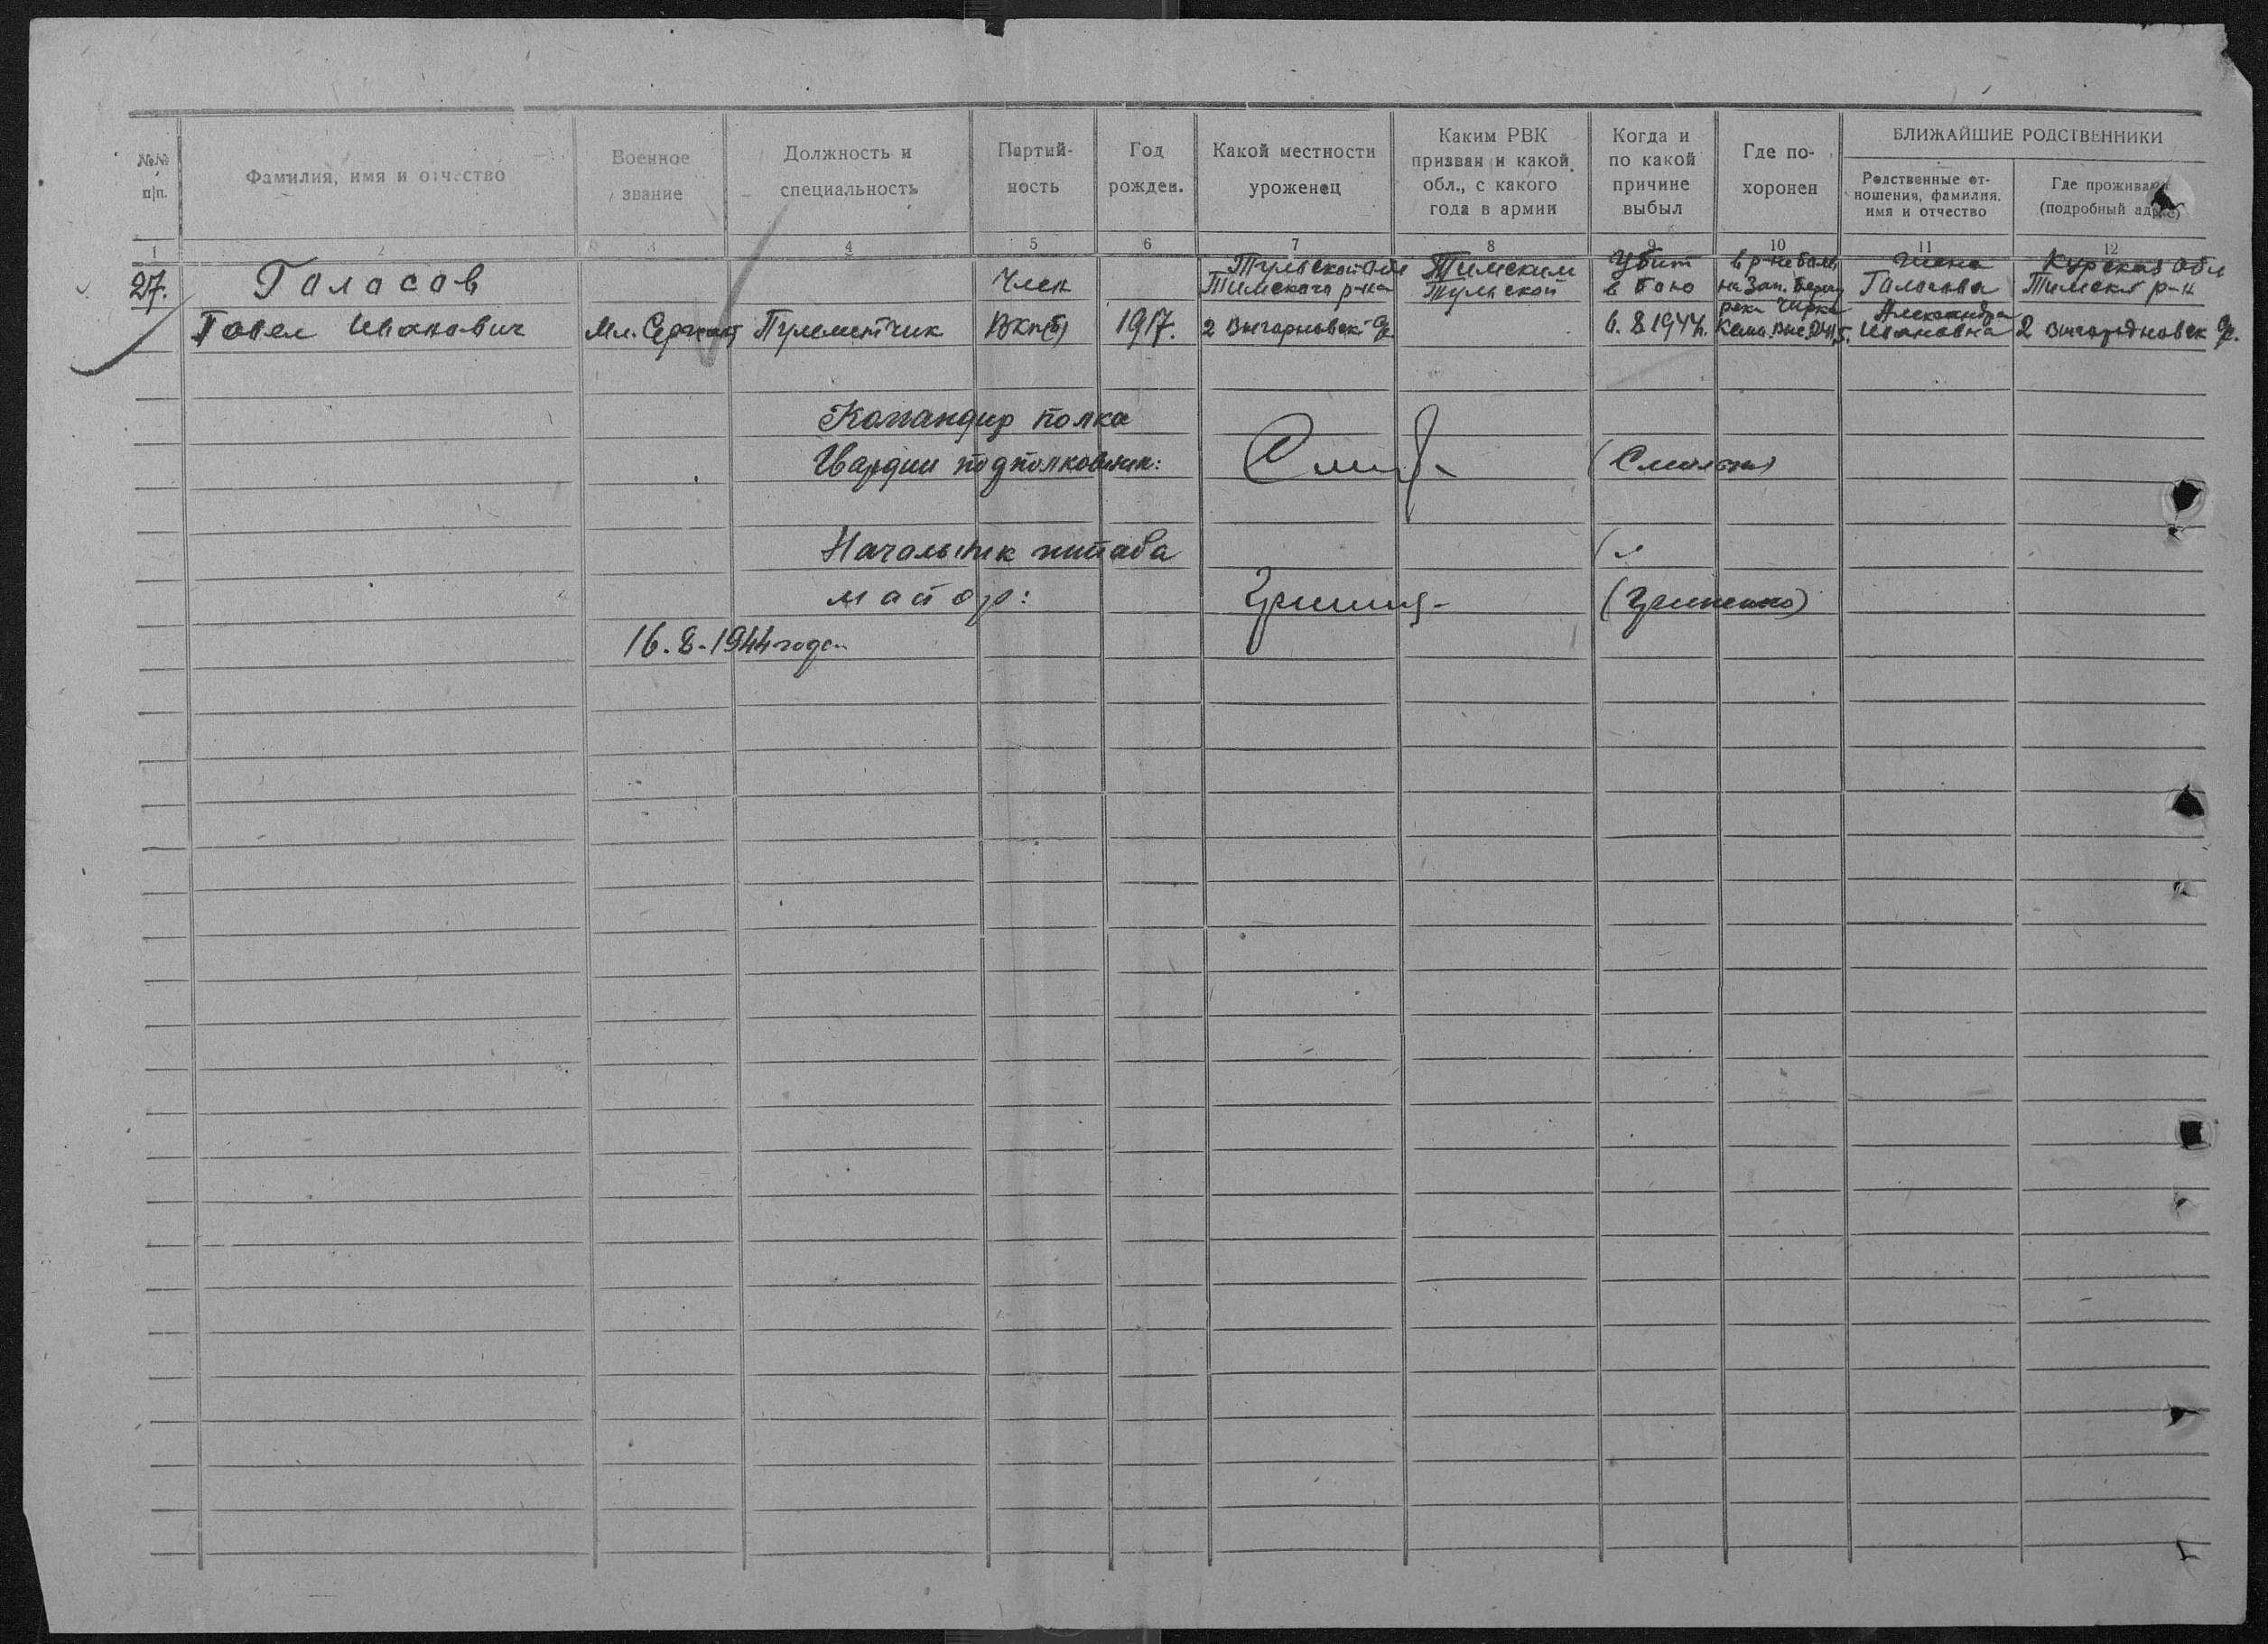 №№ п/п.
Фамилия, имя и отчество
Военное звание
Должность и специальность
Партий-
ность
Год рожден.
Какой местности уроженец
Каким РВК
призван и какой
обл., с какого
года в армии
Когда и
по какой
причине
выбыл
Где по-
хоронен
БЛИЖАЙШИЕ РОДСТВЕННИКИ
Родственные от-
ношения, фамилия,
имя и отчество
Где проживают
(подробный адрес)
1 2 3 4 5 6 7 8 9 10 11 12
27.
Галасов
Павел Иванович
Мл. Сержант
Пулеметчик
Член
ВКП(б)
1917.
Тульской обл
Тимского р-на
2 Выгорновск
Тимским
Тульской
Убит
в бою
6.8.1944г.
на Зап. берегу
реки
Жена
Галасова
Александра
Ивановна
Курская обл
Тимский р-н
2
Командир полка
Гвардии подполковник:
Начальник штаба
майор:
16.8.1944 года